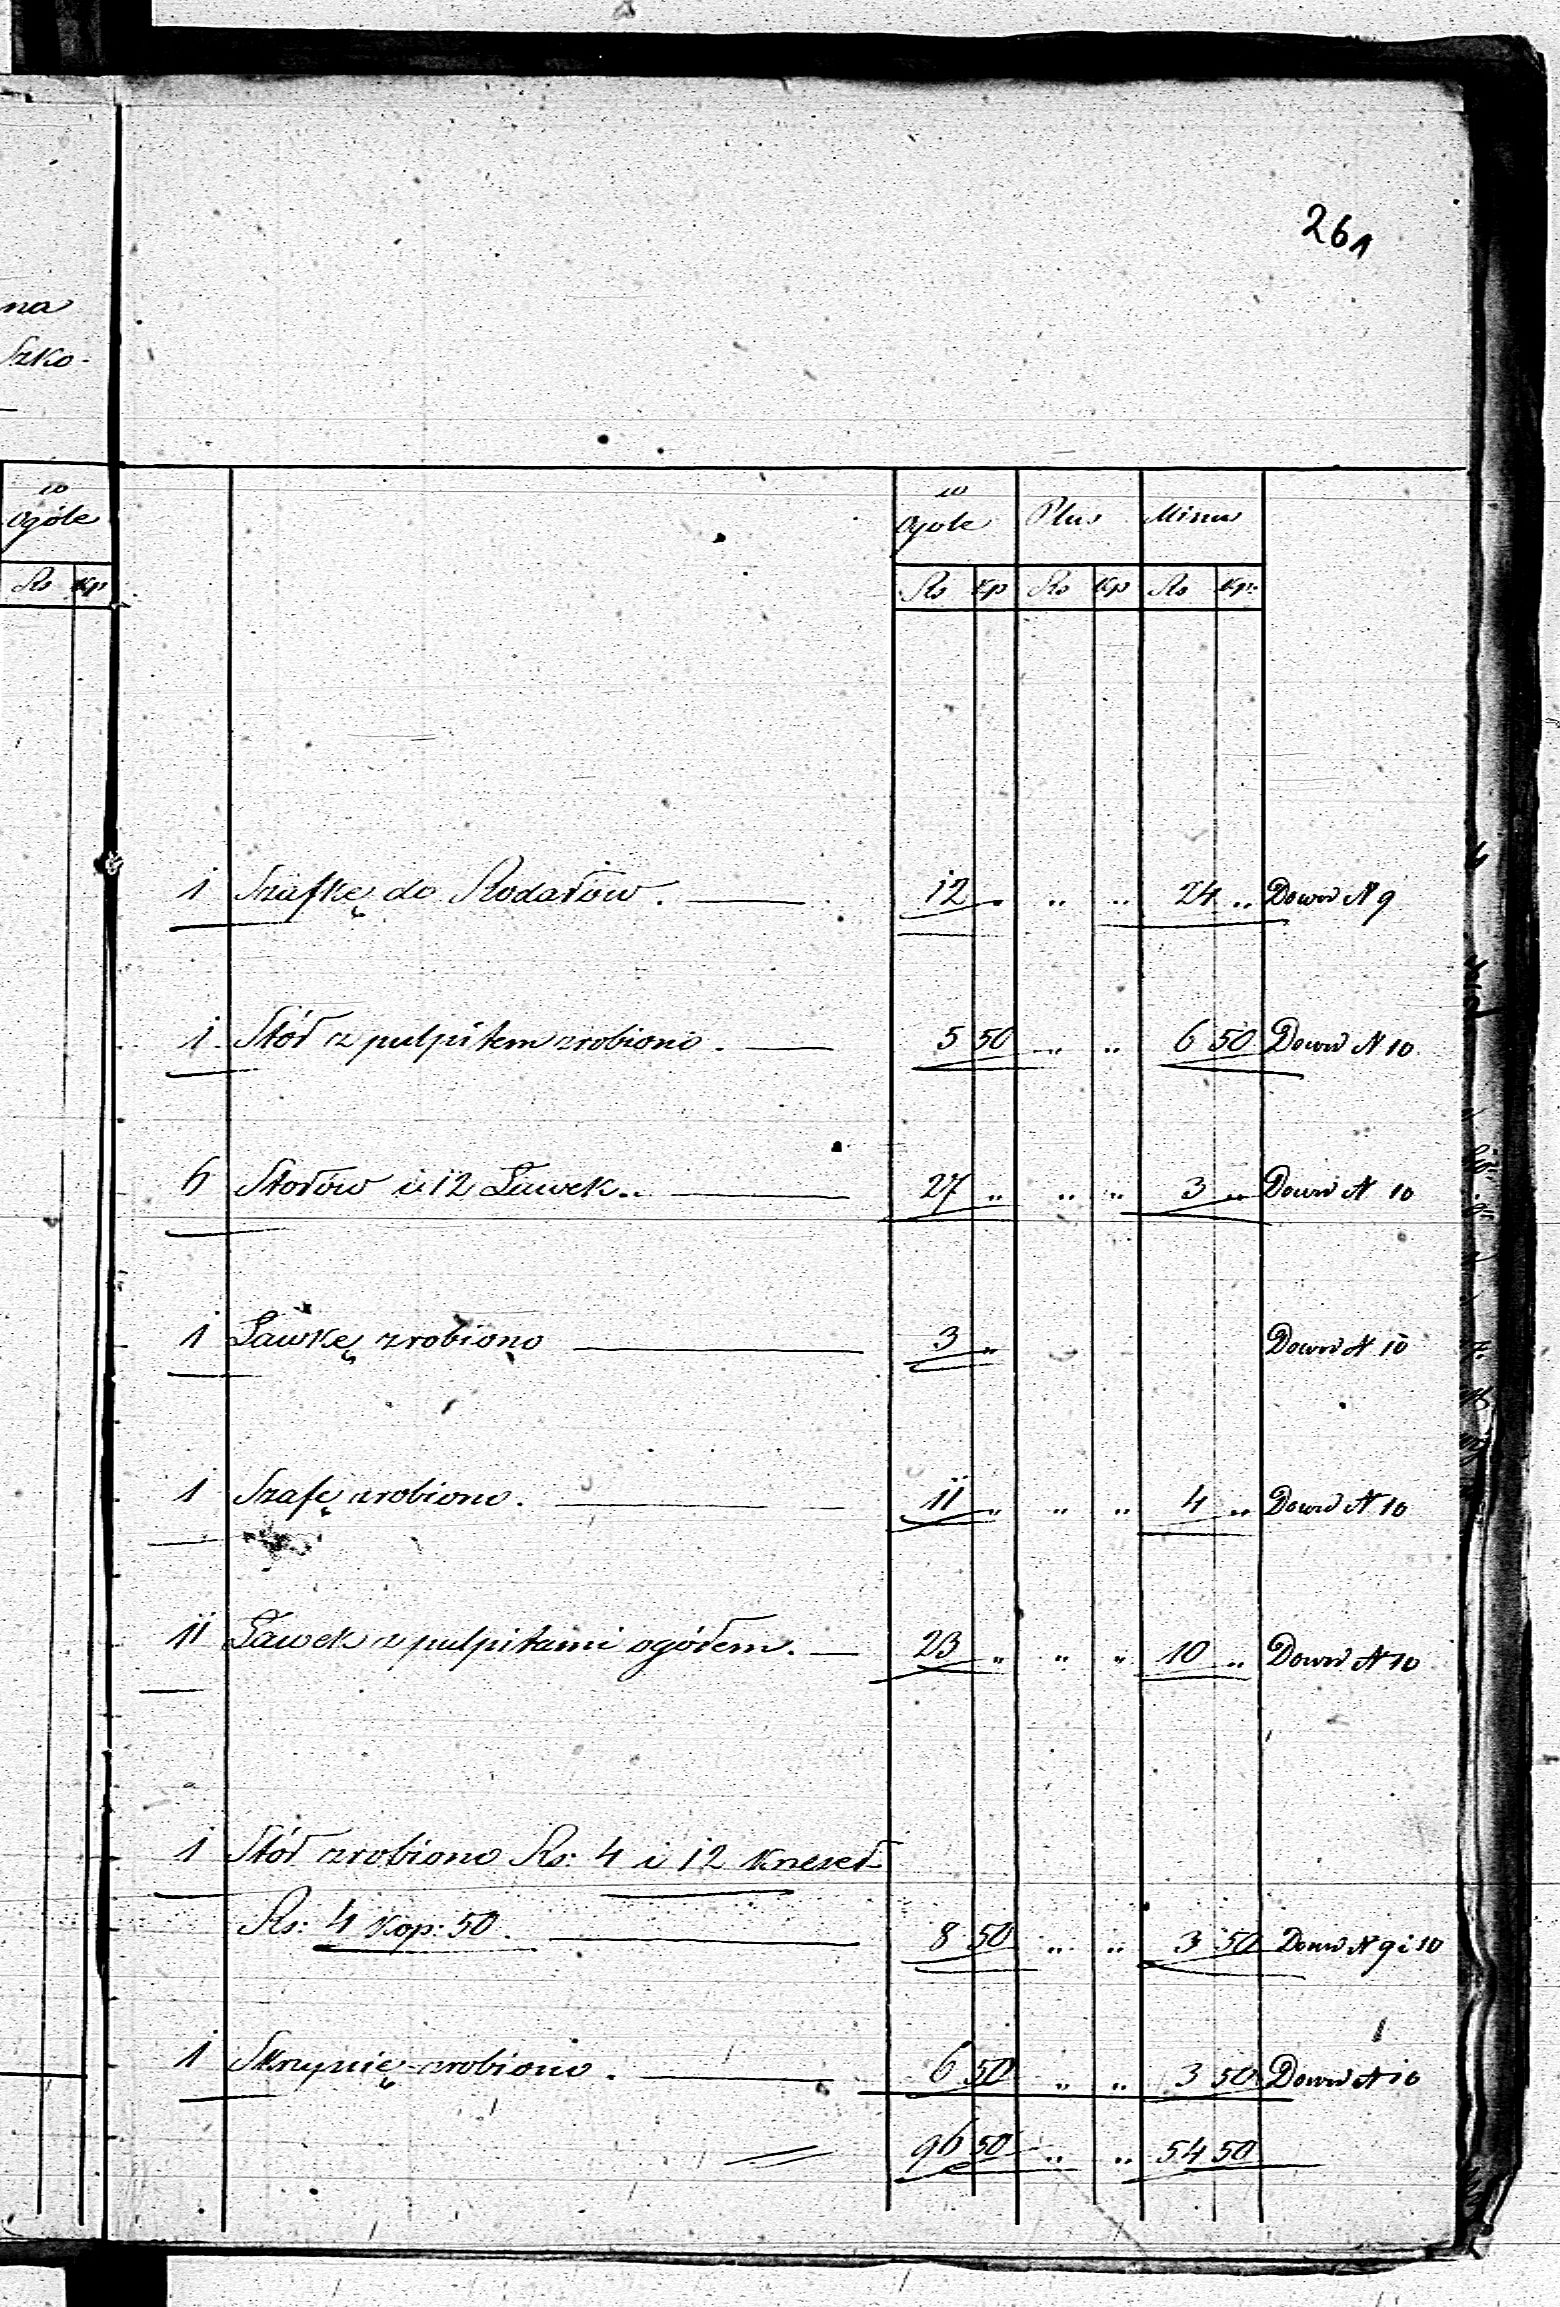 261
na
Szko-
w
Ogóle
Rs kp
w
Ogóle Plus Minus
Rs kp Rs kp Rs kp:
1 Szafkę do Rodałów. 12 " " " 24 " Dowód N 9
1 Stół z pulpitem zrobiono. 5 50 " " 6 50 Dowód N 10
6 Stołów i 12 Ławek.. 27 " " " 3 " Dowód N 10
1 Ławkę zrobiono 3 " Dowód N 10
1 Szafę zrobiono. 11 " " " 4 " Dowód N 10
11 Ławek z pulpitami ogółem. 23 " " " 10 " Dowód N 10
1 Stół zrobiono Rs: 4 i 12 krzeseł
Rs: 4 kop: 50. 8 50 " " 3 50 Dowód N 9 i 10
1 Skrzynię zrobiono. 6 50 " " 3 50 Dowód N 10
96 50 " " 54 50